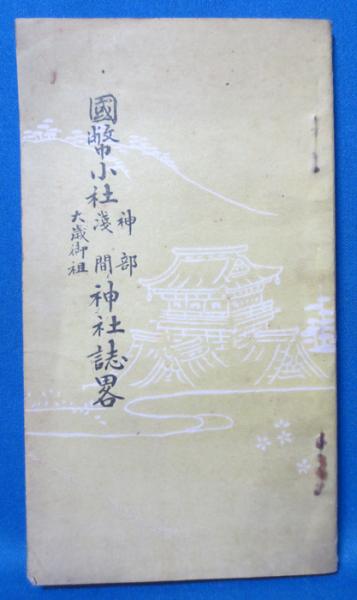 國幣小社
神部
淺間
大歳御祖
神社誌畧